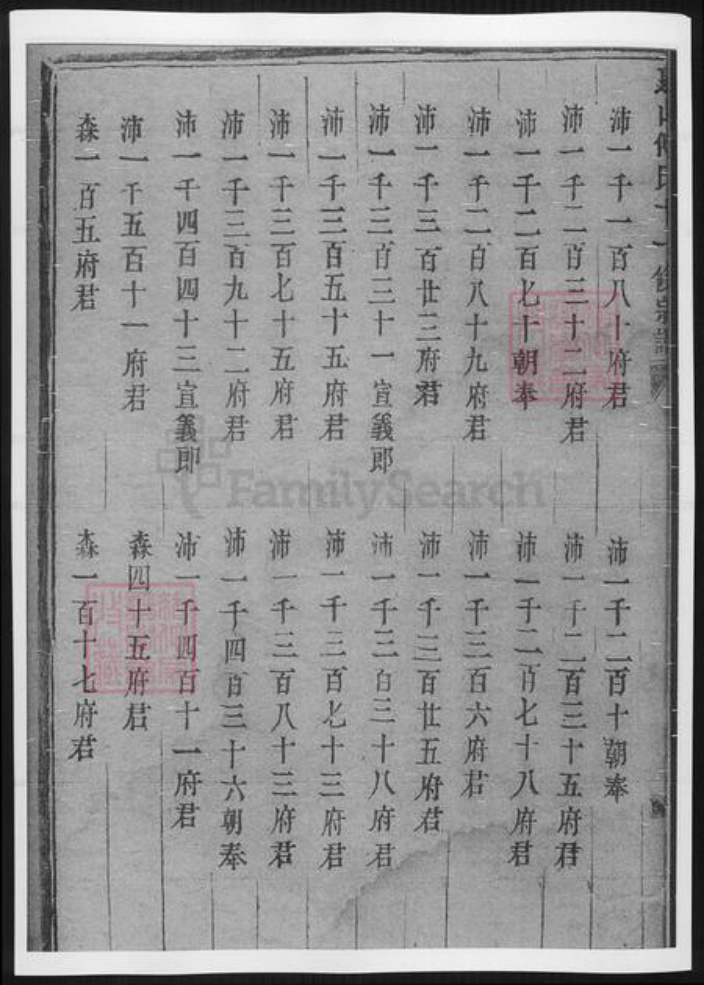 沛一千一百八十府君
沛一千二百十朝奉
沛一千二百三十二府君
沛一千二百三十五府君
沛一千二百七十朝奉
沛一千二百七十八府君
沛一千二百八十九府君
沛一千三百六府君
沛一千三百廿三府君
沛一千三百廿五府君
沛一千三百三十一宣義郎
沛一千三百三十八府君
沛一千三百五十五府君
沛一千三百七十三府君
沛一千三百七十五府君
沛一千三百八十三府君
沛一千三百九十二府君
沛一千四百三十六朝奉
沛一千四百四十三宣義郎
沛一千四百十一府君
沛一千五百十一府君
森四十五府君
森一百五府君
森一百十七府君
FamilySearch